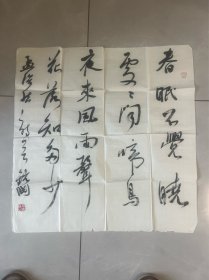 春眠不覺曉
處々聞啼鳥
夜來風雨聲
花落知多少